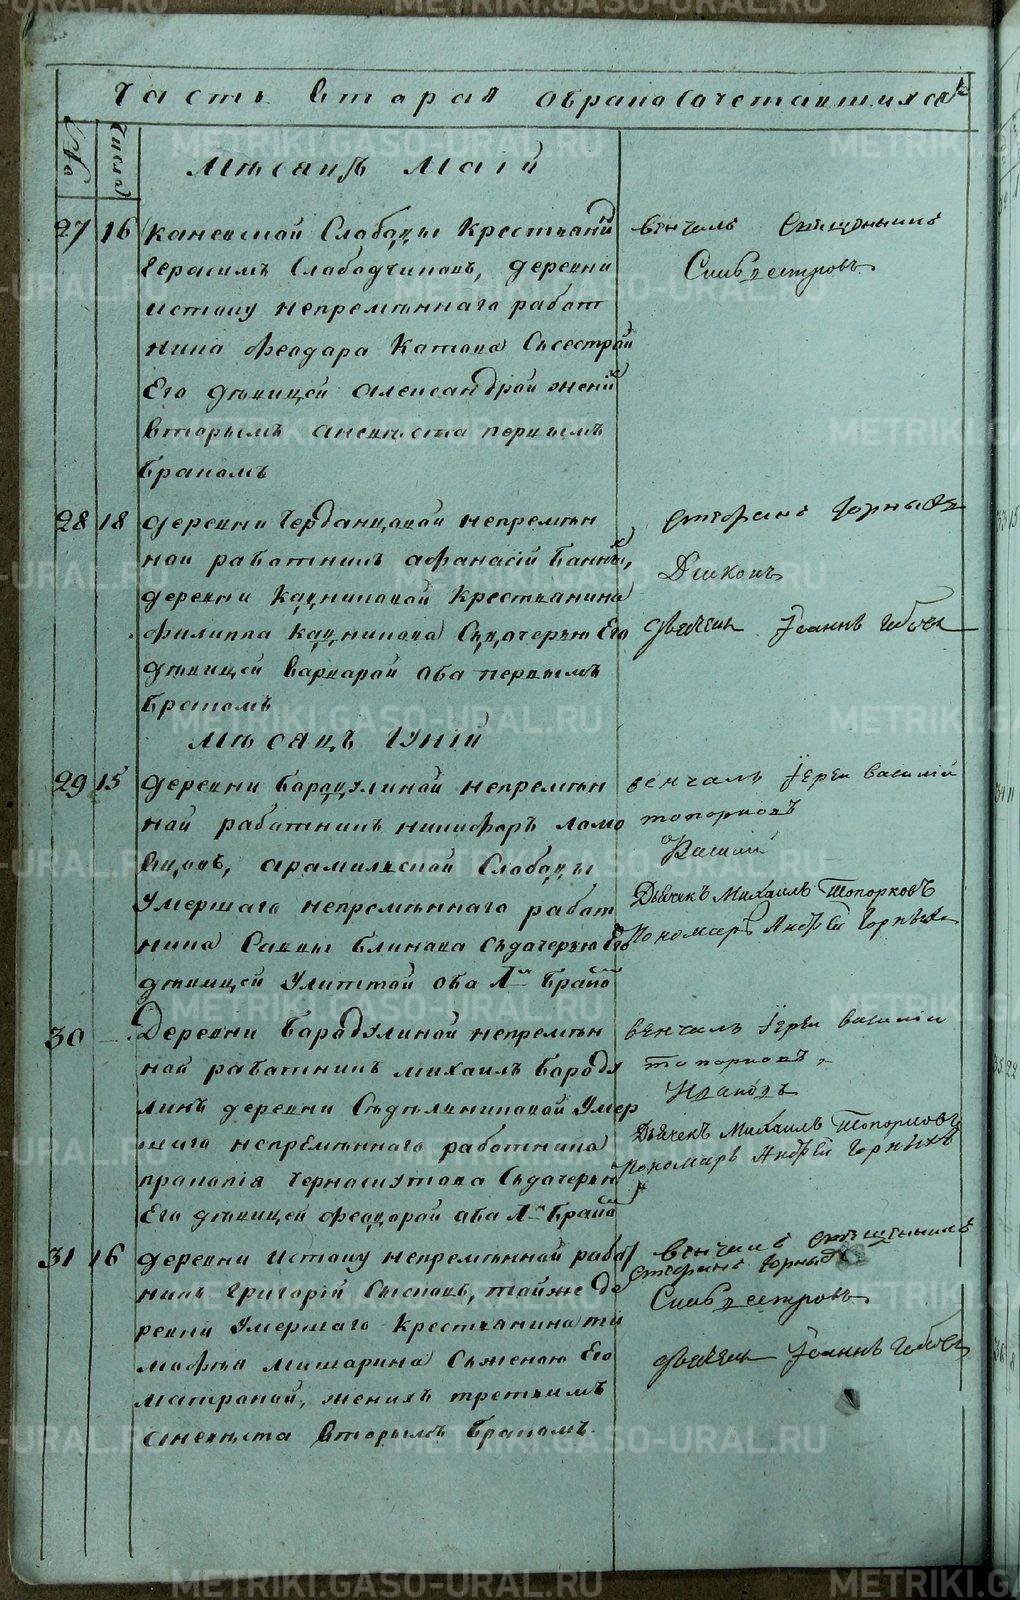 Часть вторая обракосочетавшихся
№
Число
Мѣсяцъ Маій
27 16 Каневской Слабады Крестьянин
Герасимъ Слабодчиковъ, деревни
истоку непремѣннаго работ
ника Феодара Катова Съсестрой
Его дѣвицей александрой жених
вторымъ аневѣста первымъ
бракомъ
венчалъ Священникъ
Сильвестровъ
28 18 деревни Черданцовой непремѣн
ной работникъ афанасій Банных,
деревни Кадниковой Крестьянина
филиппа Кадникова Съдочерью Его
дѣвицей Варварой оба первымъ
бракомъ
Стефанъ Горныхъ
Дьяконъ
Дьячекъ Іоаннъ
Мѣсяцъ Іуній
29 15 деревни Барадулиной непремѣн
ной работникъ никифоръ Ламо
вцовъ, арамилской Слободы
Умершаго непремѣннаго работ
ника Саввы Блинова Съдачерью Его
дѣвицей Улиттой оба 1м брако
венчалъ Іерей Василій
топорковъ
Василій
Дьячекъ Михаилъ Топорковъ
Пономарь Андрей Горныхъ
30 — Деревни Барадулиной непремѣн
ной работникъ михаилъ Бароду
линъ деревни Сѣдѣлниковой Умер
шаго непремѣннаго работника
пракопія Чернаскутова Съдачерью
Его дѣвицей феодорой аба 1м брако
венчалъ Іерей василіи
топорковъ
Дьячекъ Михаилъ Топорковъ
Пономарь Андрей Горныхъ
31 16 деревни Истоку непремѣнной работ
никъ Григорій Сысковъ, тойже де
ревни Умершаго Крестьянина ти
мофѣя мишарина Съженою Его
матроной, женихъ третьимъ
аневѣста вторымъ бракомъ
венчалъ Священникъ
Стефанъ Горныхъ
Сильвестровъ
Дьячекъ Іоаннъ
METRIKI.GASO-URAL.RU